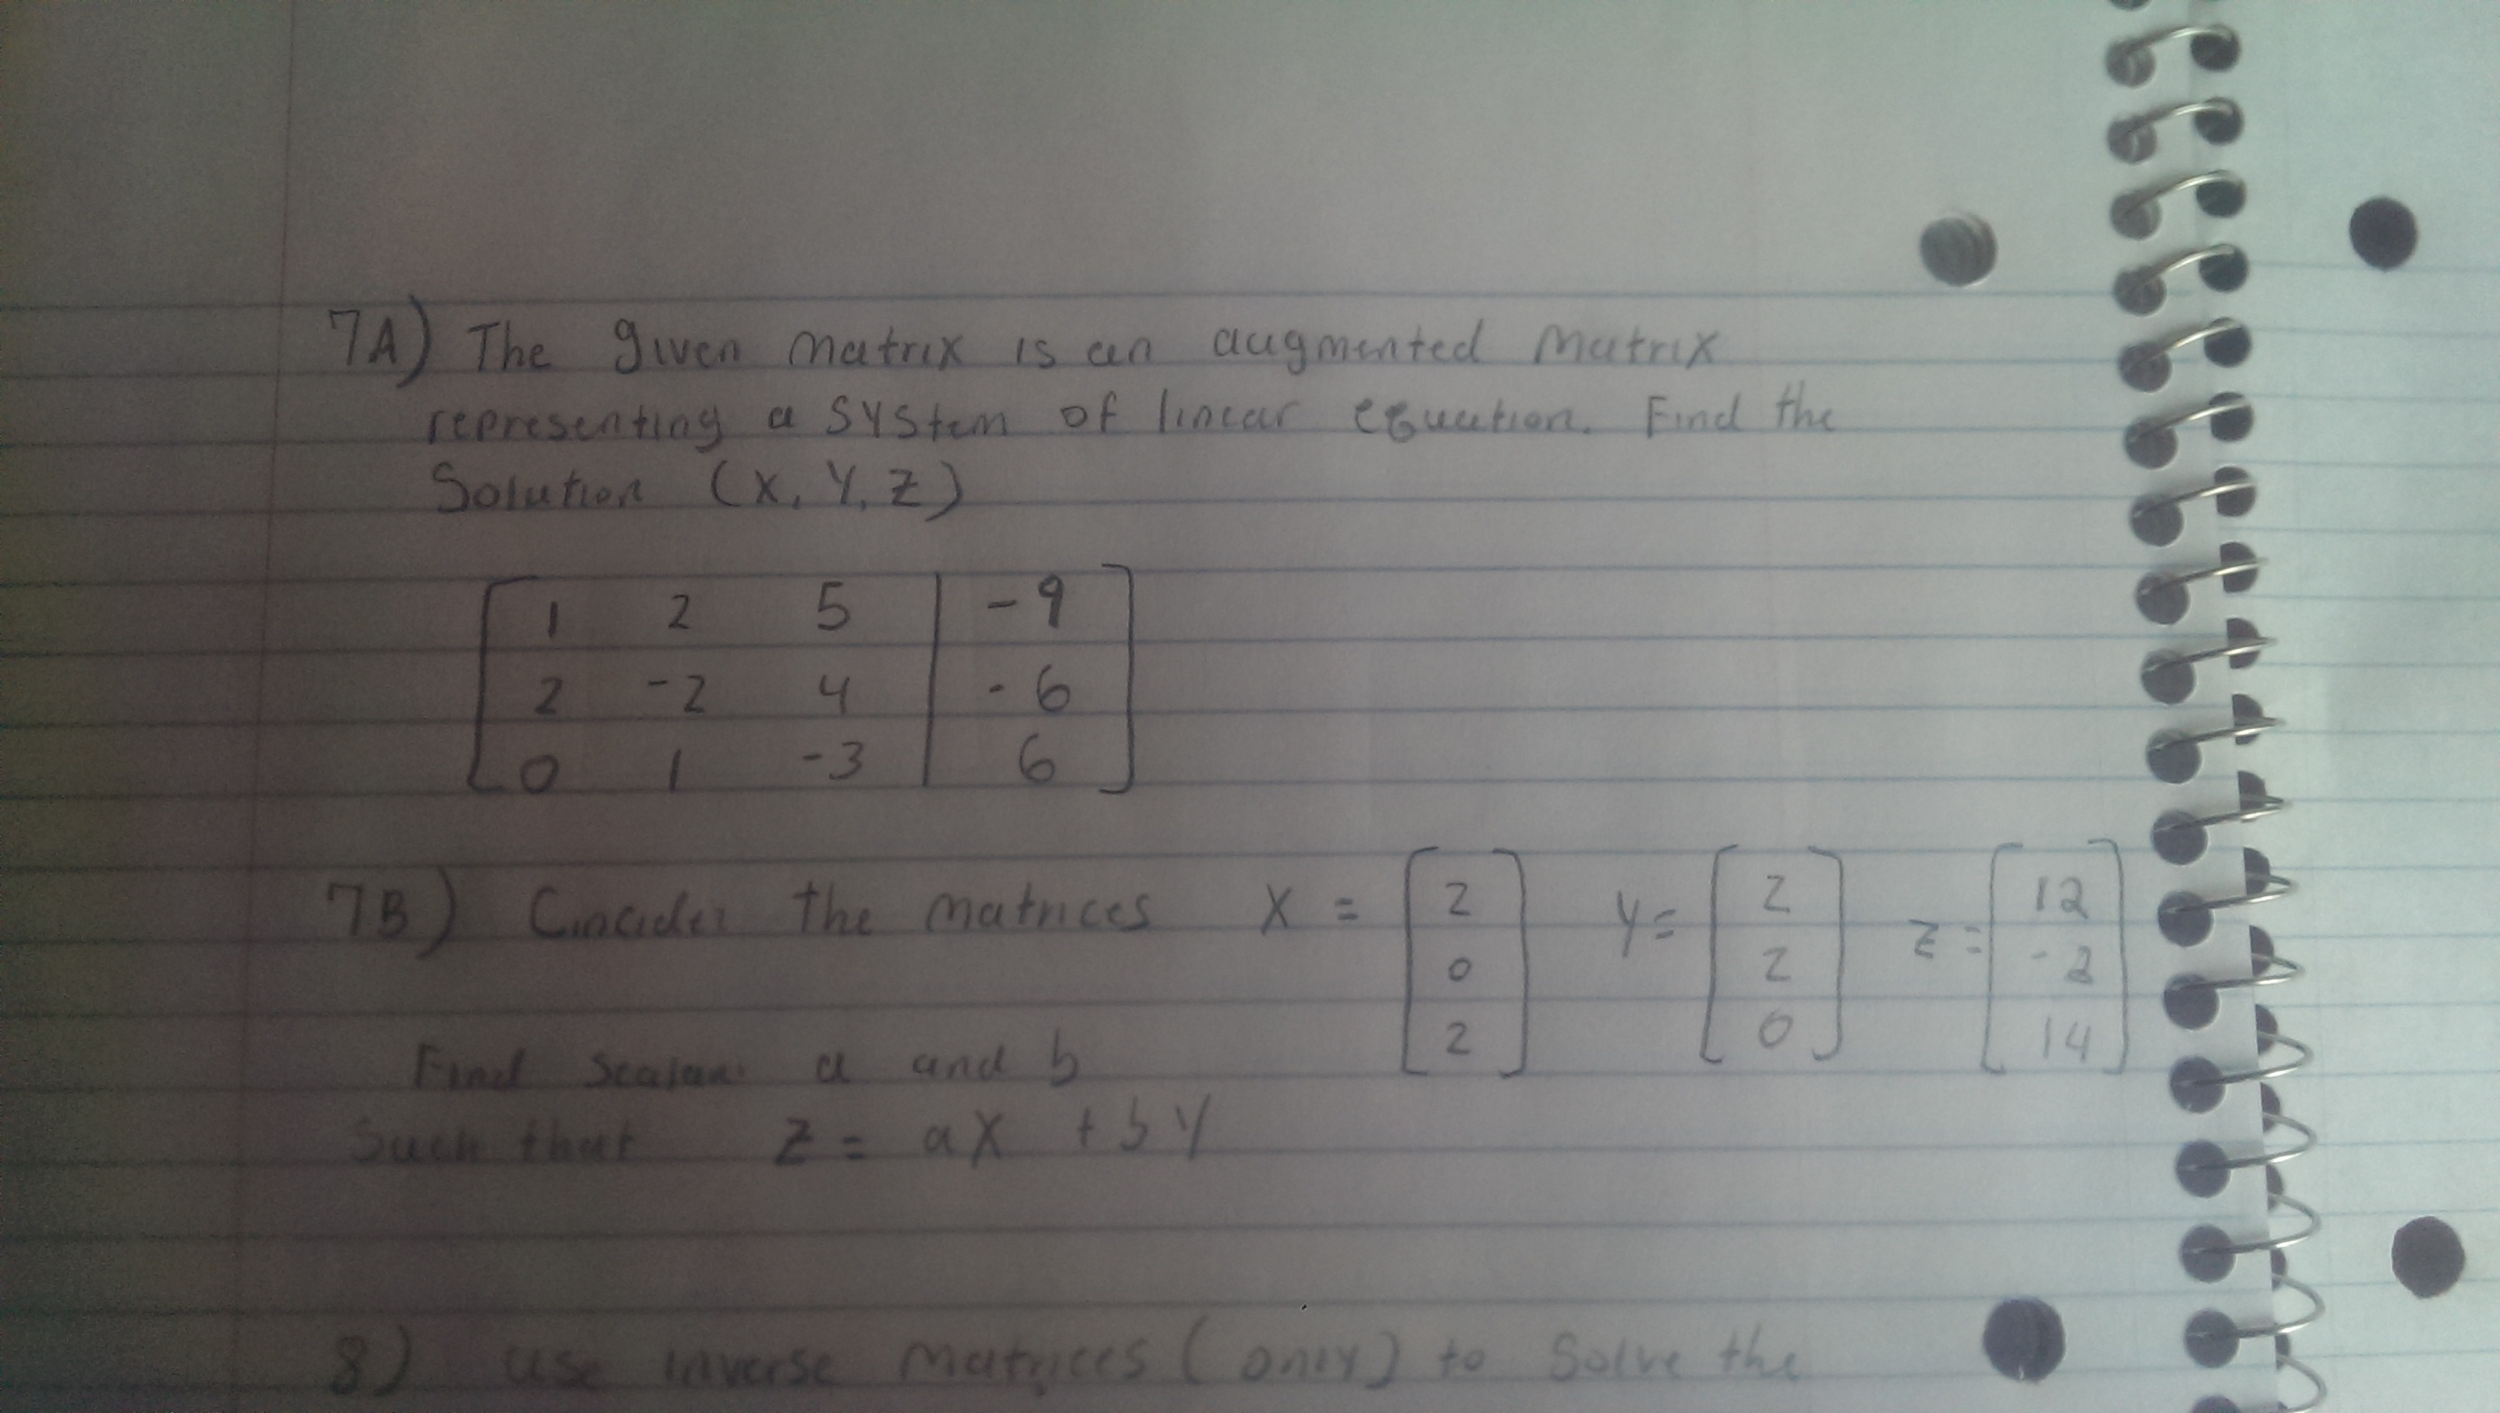 7A) The given matrix is an augmented matrix
representing a system of linear equation. Find the
Solution (X, Y, Z)
1 2 5 | -9
2 -2 4 | -6
0 1 -3 | 6
7B) Concider the matrices X = [2 0 2] Y = [2 2 0] Z = [12 -2 14]
Find scalars a and b
Such that Z = aX + bY
8) use inverse matrices (only) to solve the